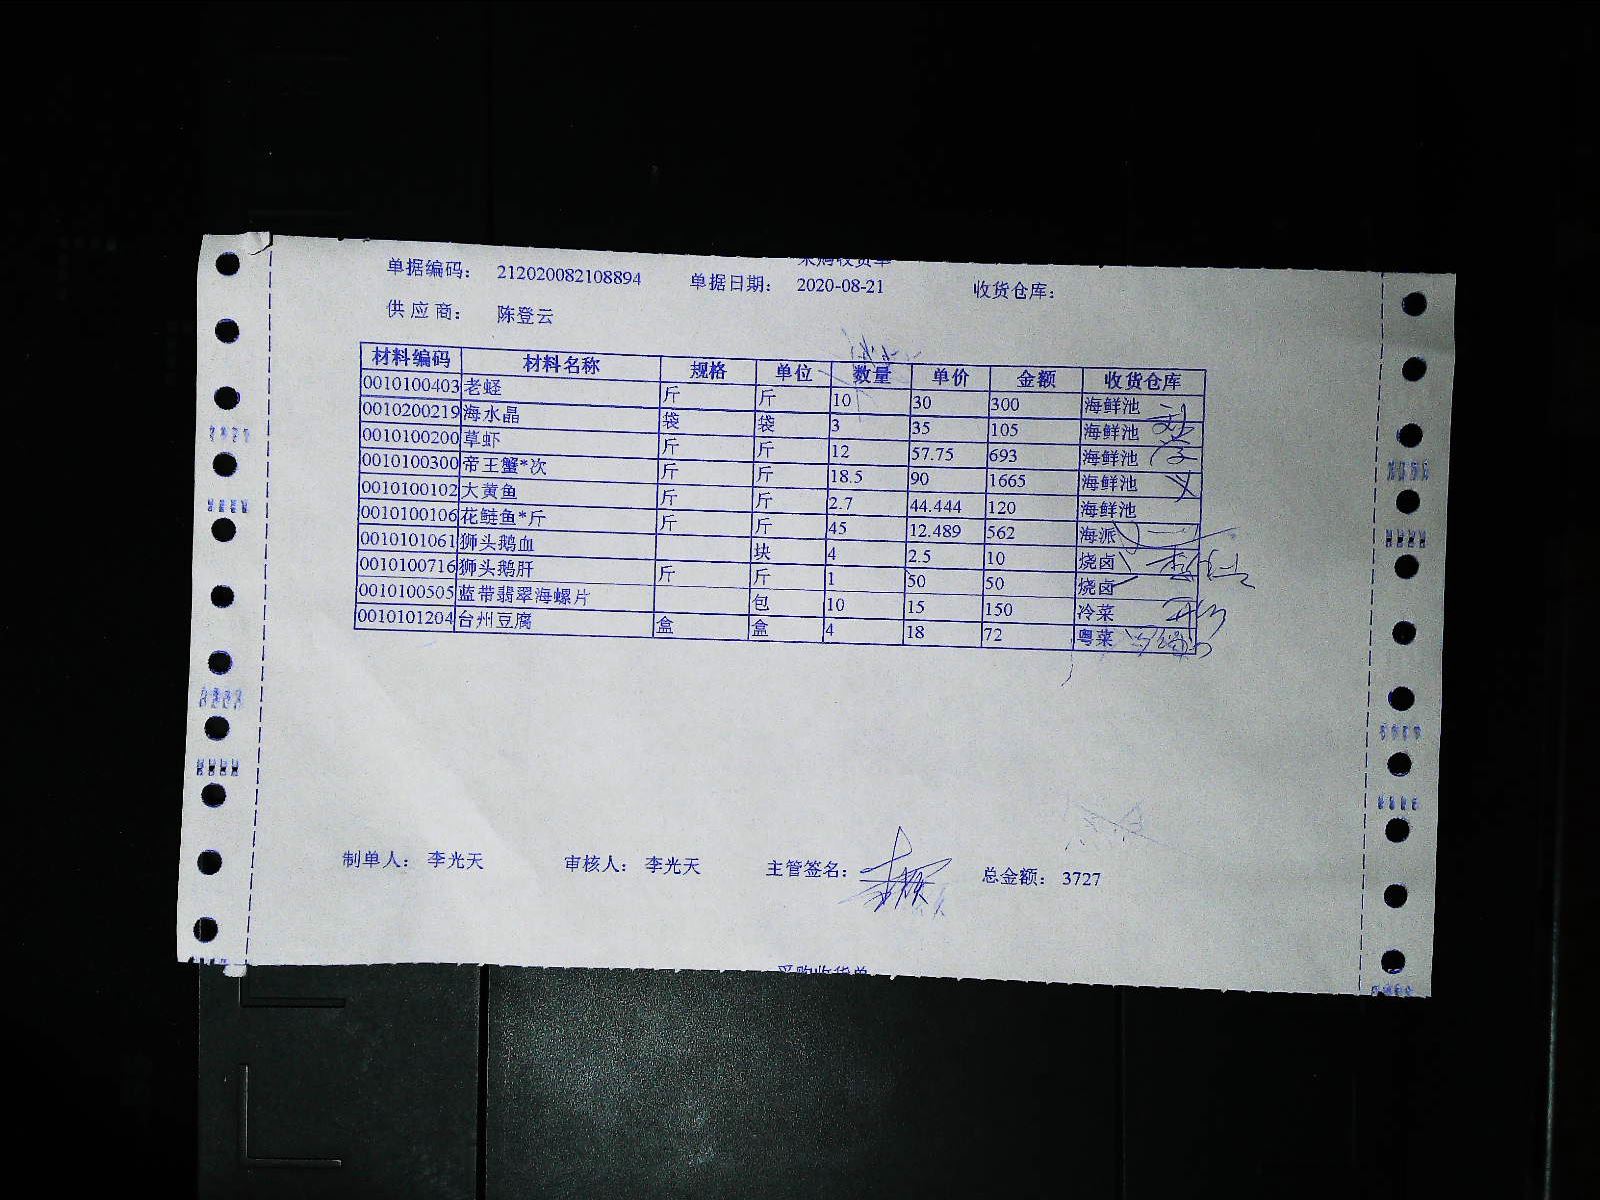 采购收货单
单据编码： 212020082108894 单据日期： 2020-08-21 收货仓库：
供应商： 陈登云
材料编码 材料名称 规格 单位 数量 单价 金额 收货仓库
0010100403 老蛏 斤 斤 10 30 300 海鲜池
0010200219 海水晶 袋 袋 3 35 105 海鲜池
0010100200 草虾 斤 斤 12 57.75 693 海鲜池
0010100300 帝王蟹*次 斤 斤 18.5 90 1665 海鲜池
0010100102 大黄鱼 斤 斤 2.7 44.444 120 海鲜池
0010100106 花鲢鱼*斤 斤 斤 45 12.489 562 海派
0010101061 狮头鹅血 块 4 2.5 10 烧卤
0010100716 狮头鹅肝 斤 斤 1 50 50 烧卤
0010100505 蓝带翡翠海螺片 包 10 15 150 冷菜
0010101204 台州豆腐 盒 盒 4 18 72 粤菜
制单人： 李光天 审核人： 李光天 主管签名： 总金额： 3727
采购收货单